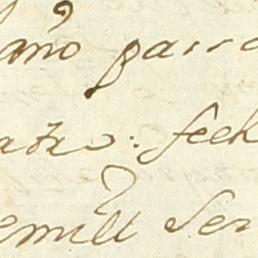 año passa
atro: fech
emill Ser